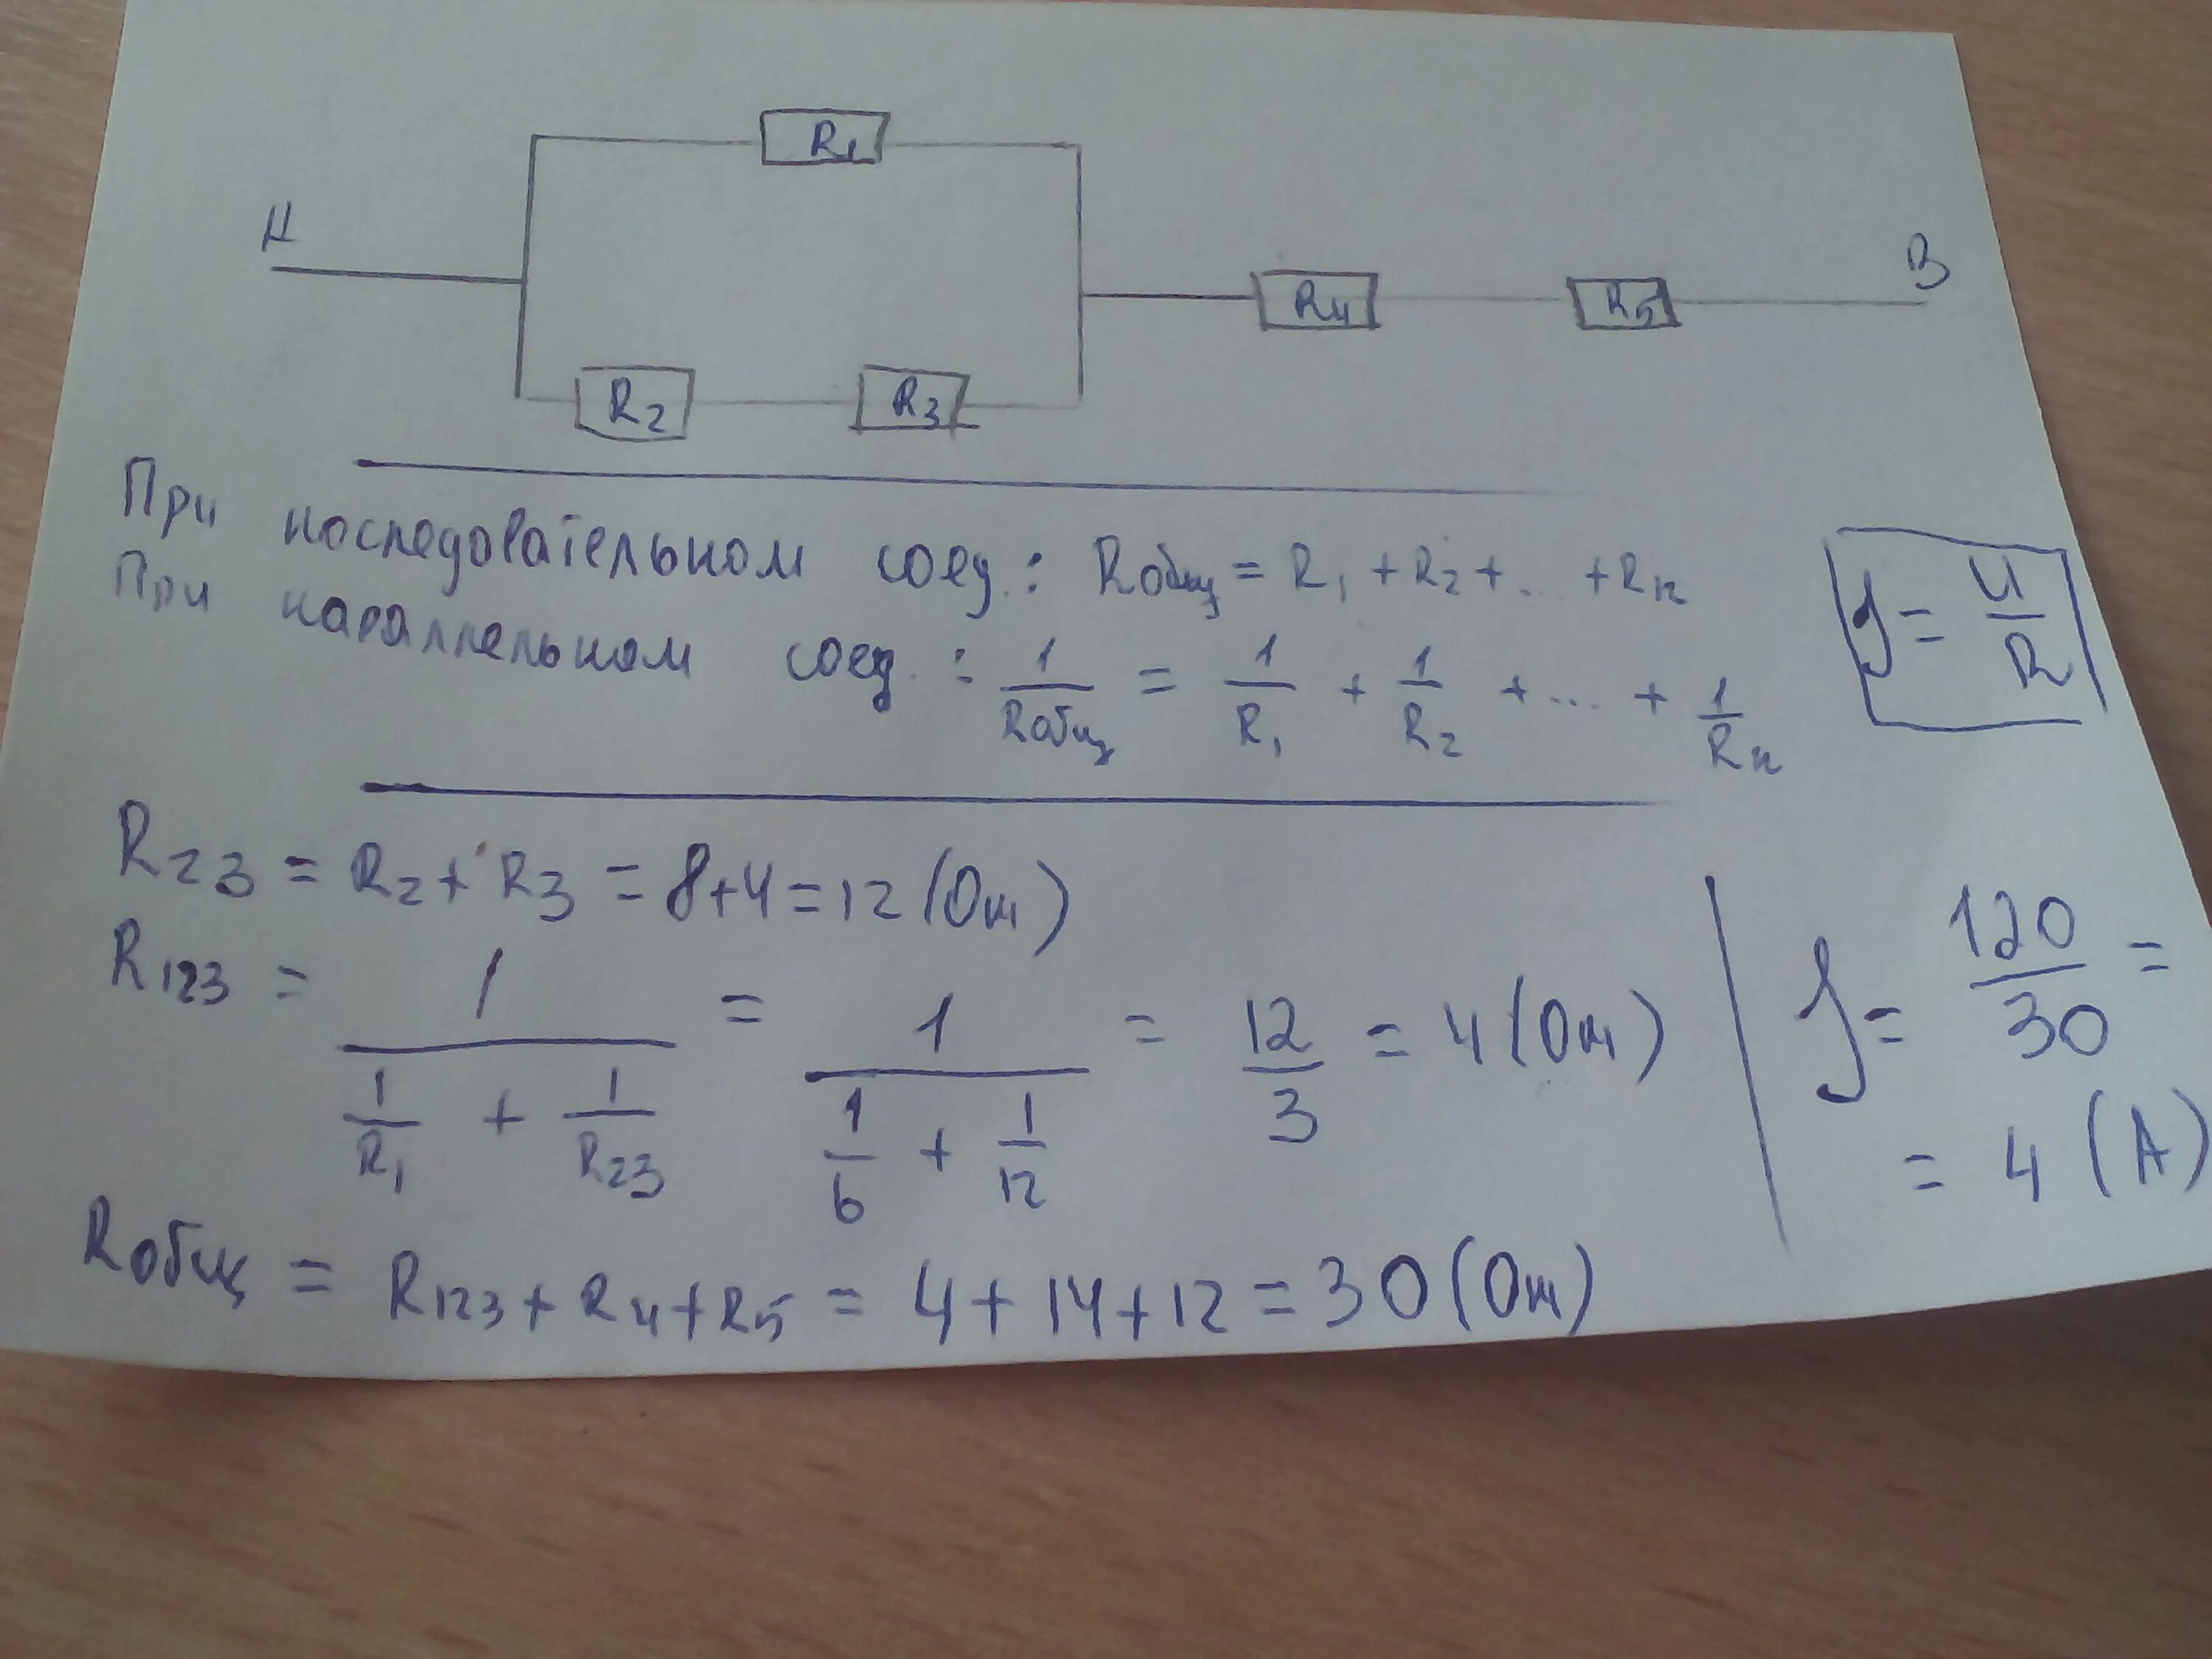 R₁
А
В
R₄
R₅
R₂
R₃
При последовательном соед.: Rобщ = R₁ + R₂ + ... + Rn
При параллельном соед.: 1/Rобщ = 1/R₁ + 1/R₂ + ... + 1/Rn
J = U/R
R₂₃ = R₂ + R₃ = 8+4 = 12 (Ом)
R₁₂₃ = 1/(1/R₁ + 1/R₂₃) = 1/(1/6 + 1/12) = 12/3 = 4 (Ом)
J = 120/30 =
= 4 (А)
Rобщ = R₁₂₃ + R₄ + R₅ = 4 + 14 + 12 = 30 (Ом)